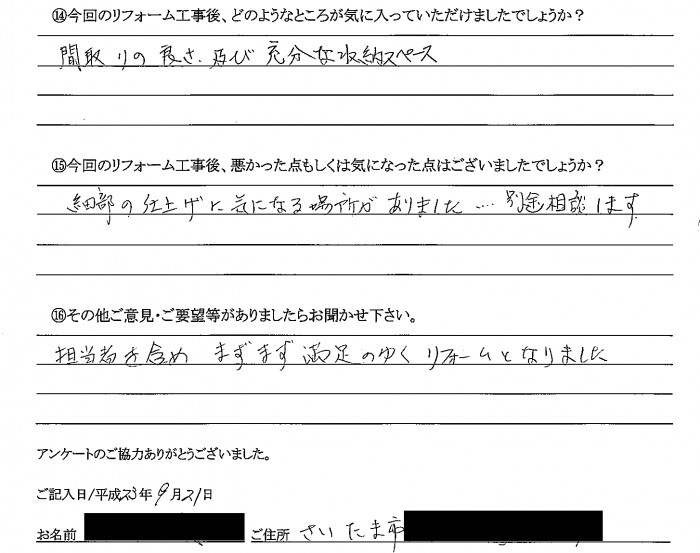 ⑭今回のリフォーム工事後、どのようなところが気に入っていただけましたでしょうか？
間取りの良さ、及び充分な収納スペース
⑮今回のリフォーム工事後、悪かった点もしくは気になった点はございましたでしょうか？
細部の仕上げに気になる場所がありました…. 別途相談します
⑯その他ご意見・ご要望等がありましたらお聞かせ下さい。
担当者を含め まずまず満足のゆくリフォームとなりました
アンケートのご協力ありがとうございました。
ご記入日/平成23年9月21日
お名前 ご住所 さいたま市